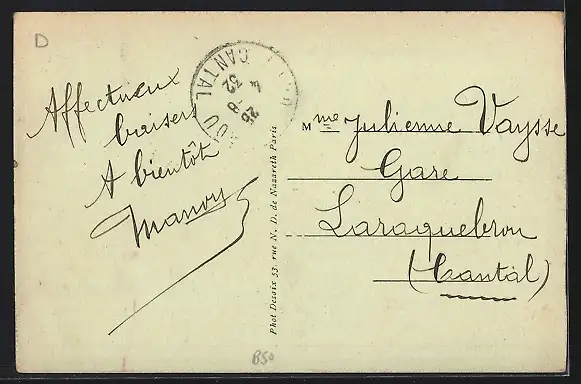 D
Affectueux
baisers
A bientôt
Manou
CANTAL
25 -8
4 32
Phot Desaix 53, rue N. D. de Nazareth Paris
Mme Julienne Vaysse
Gare
Laroquebrou
(Cantal)
B50